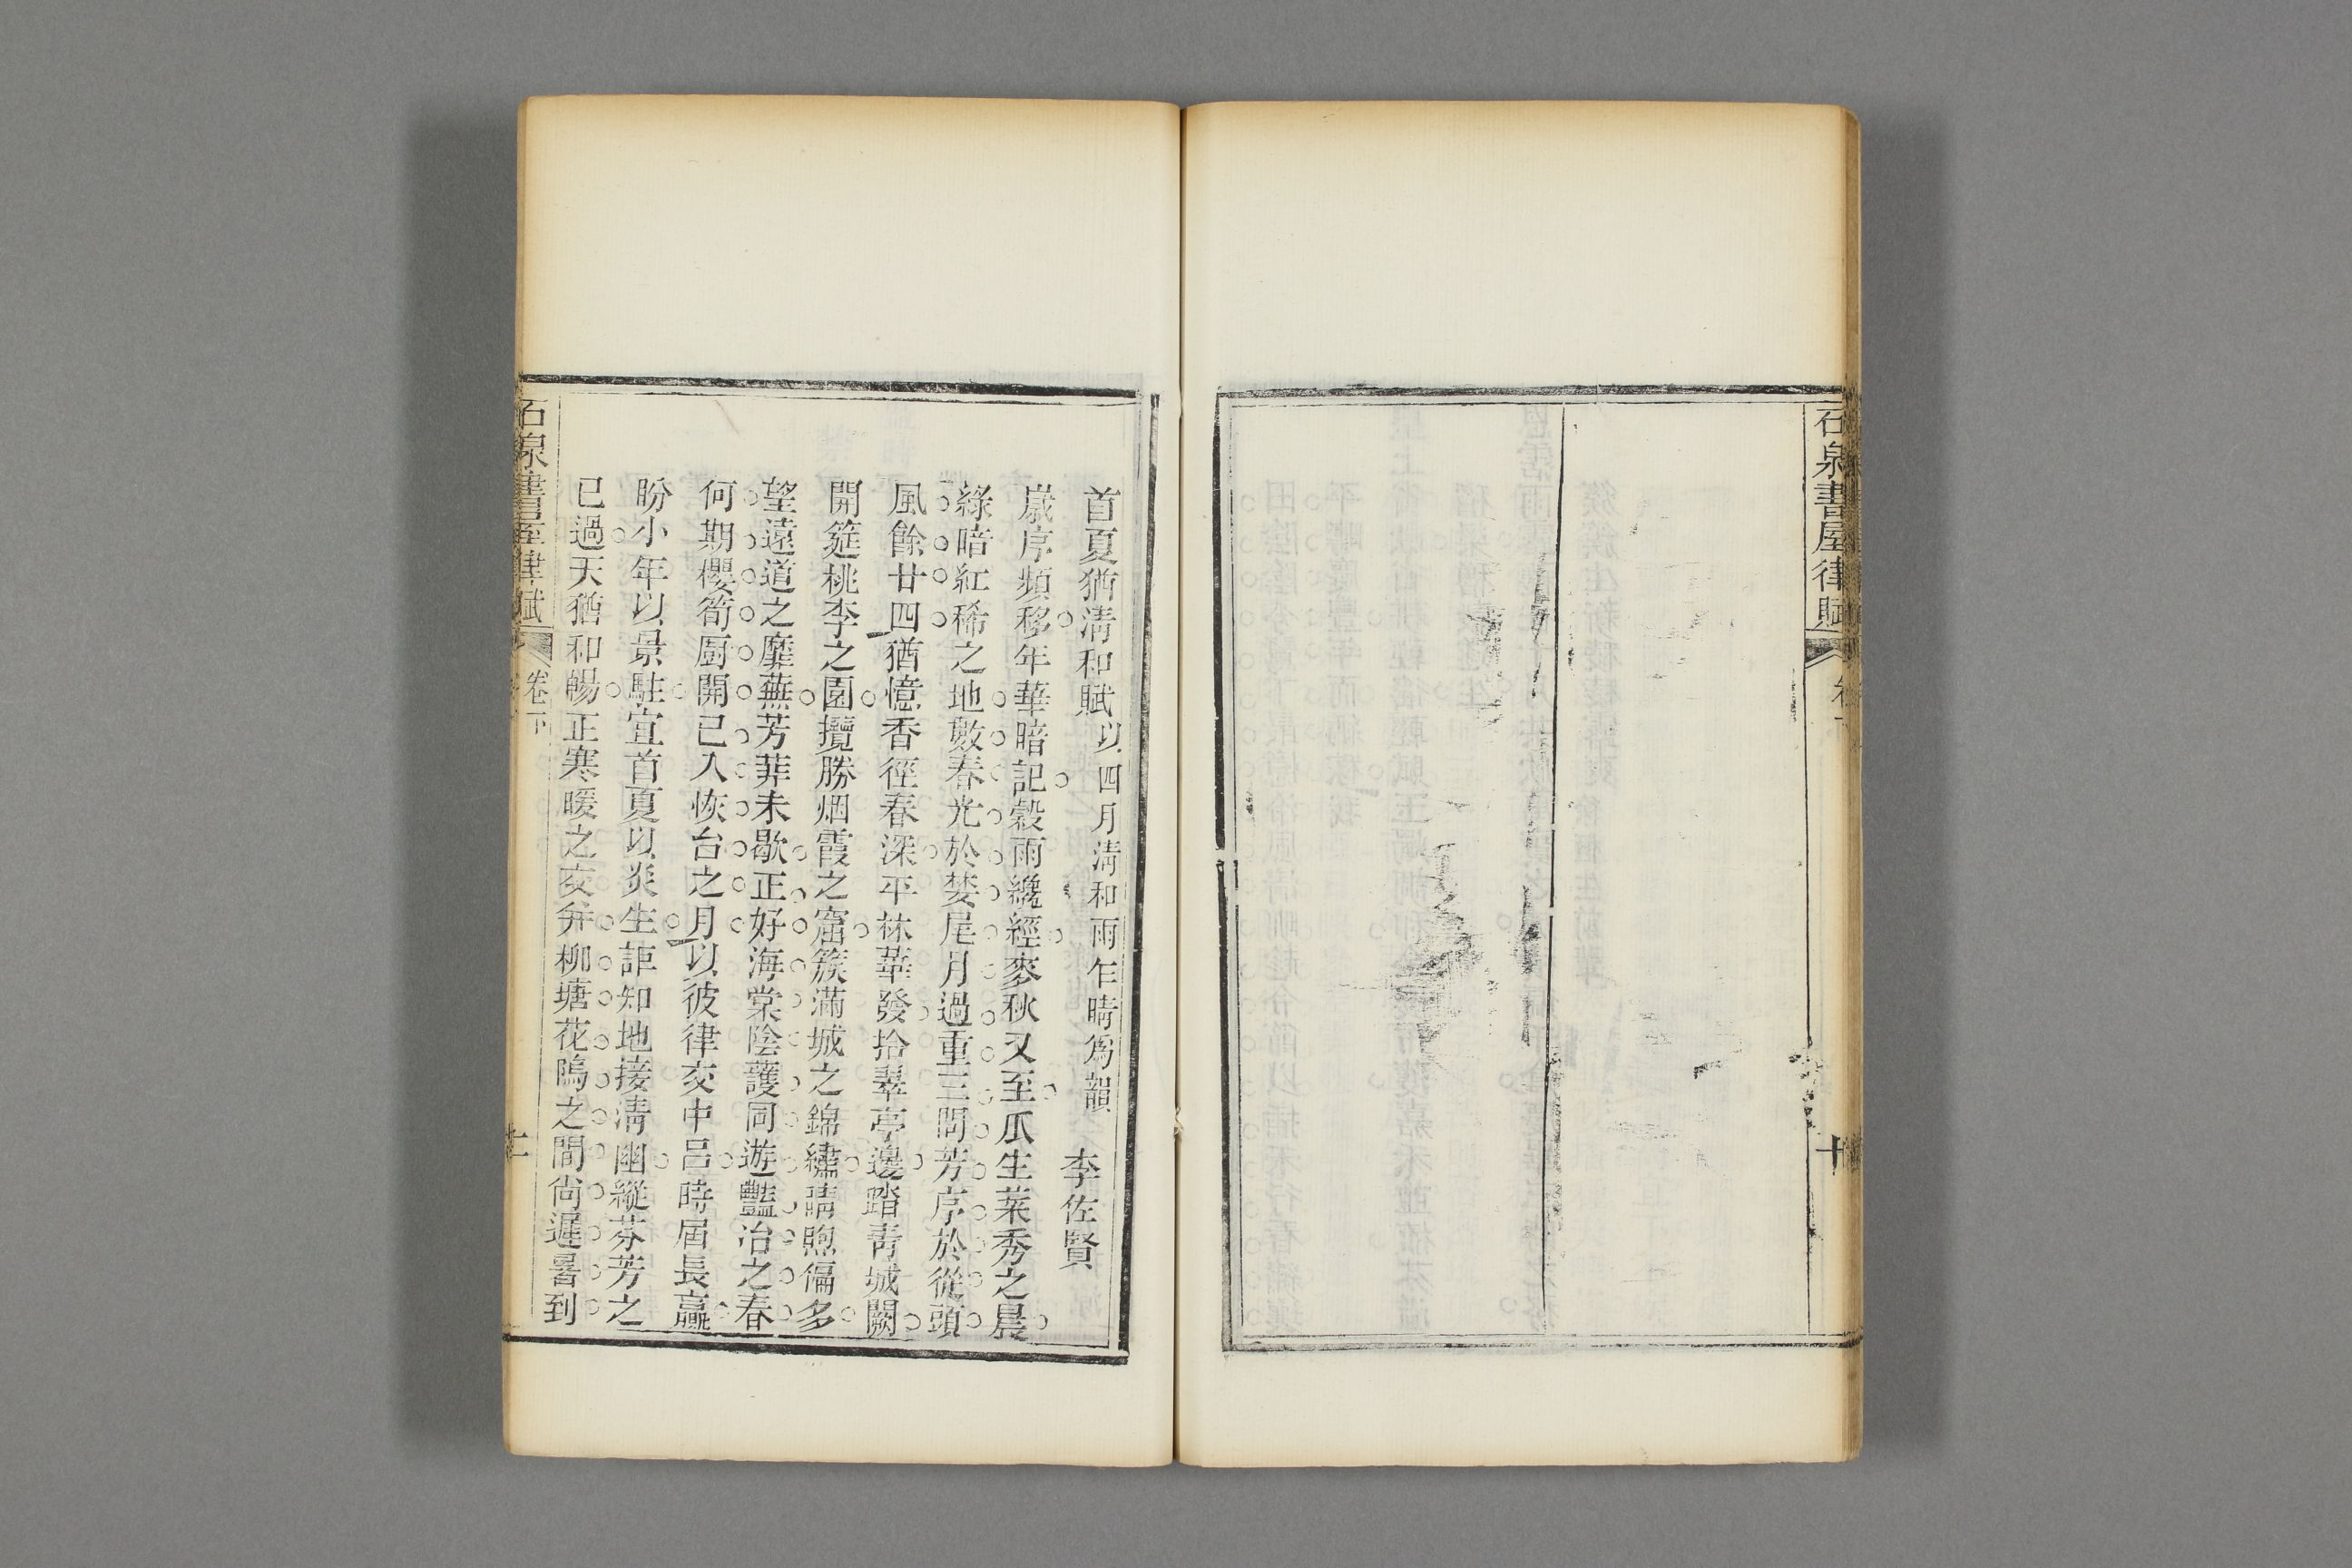 石泉書屋律賦
卷下
十
首夏猶淸和賦 以四月淸和雨乍晴爲韻 李佐賢
歲序頻移年華暗記穀雨纔經麥秋又至瓜生葉秀之晨
綠暗紅稀之地數春光於婪尾月過重三問芳序於從頭
風餘廿四猶憶香徑春深平林華發拾翠亭邊踏靑城闕
開筵桃李之園攬勝烟霞之窟簇滿城之錦繡晴煦偏多
望遠道之蘼蕪芳菲未歇正好海棠陰護同遊豔冶之春
何期櫻筍厨開已入恢台之月以彼律交中呂時屆長贏
盼小年以景駐宜首夏以炎生詎知地接淸幽縱芬芳之
已過天猶和暢正寒暖之交幷柳塘花隖之間尙遲暑到
石泉書屋律賦
卷下